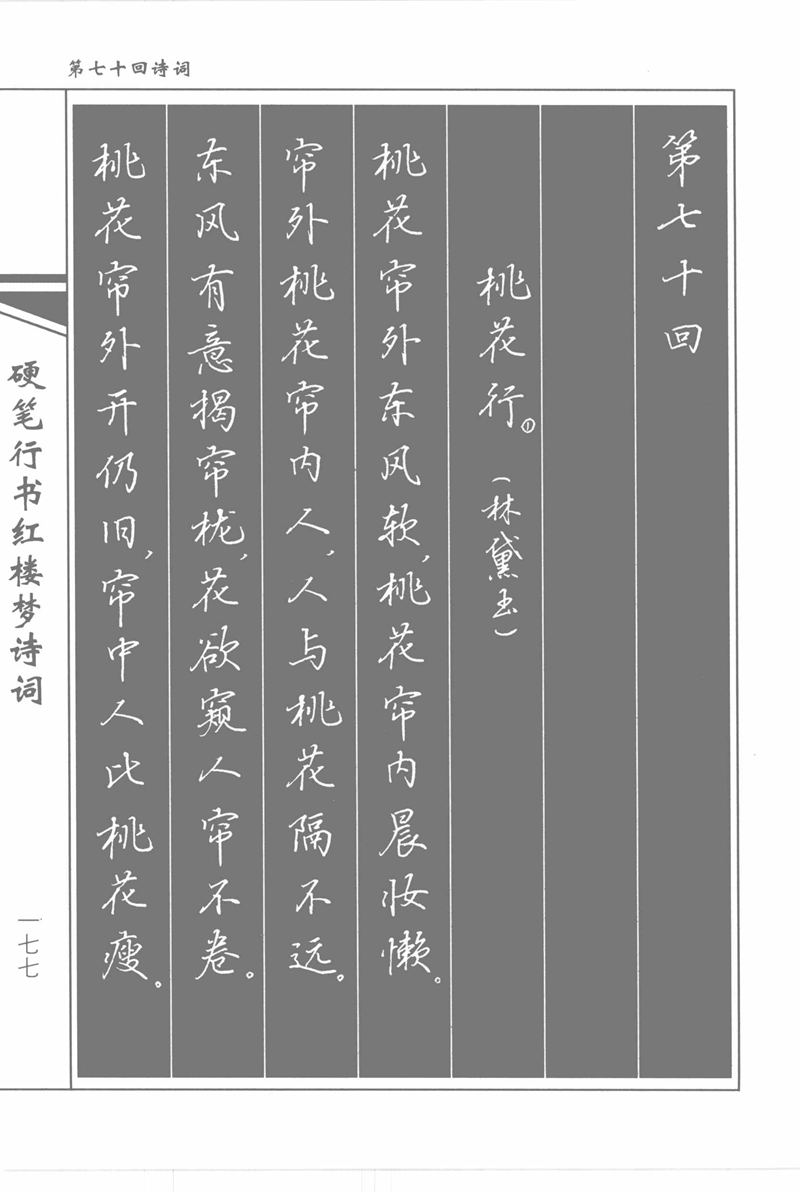 第七十回诗词
第七十回
桃花行。①
(林黛玉)
桃花帘外东风软,桃花帘内晨妆懒。
帘外桃花帘内人,人与桃花隔不远。
东风有意揭帘栊,花欲窥人帘不卷。
桃花帘外开仍旧,帘中人比桃花瘦。
硬笔行书红楼梦诗词
一七七